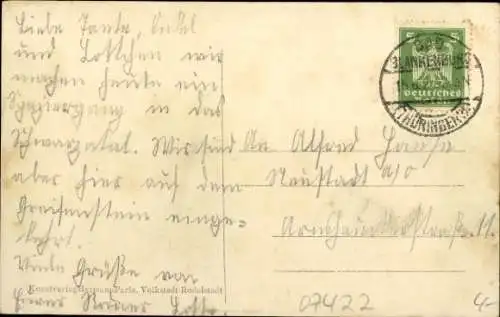 Liebe Tante, Onkel
und Lottchen wir
machen heute ein
Spaziergang in das
Schwarzatal. Wir sind
aber hier auf dem
Greifenstein einge-
kehrt.
Viele Grüße von
Eurer Lotte.
An Alfred
Neustadt a/O
Arnshaugkerstraße 11.
BAD
BLANKENBURG
(THÜRINGERW)
5
Deutsches
Kunstverlag Hermann Paris, Volkstedt-Rudolstadt
07422
4-